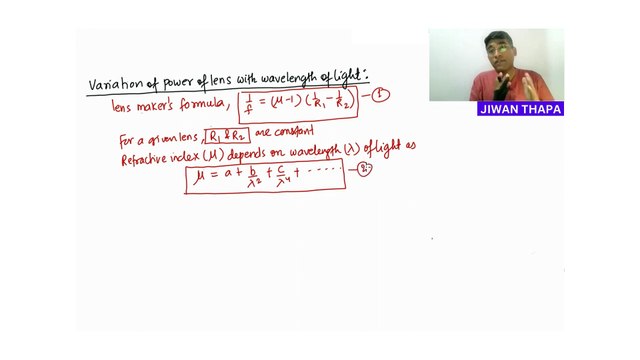 Variation of power of lens with wavelength of light:
lens maker's formula, 1/f = (μ-1) (1/R₁ - 1/R₂) — (i)
For a given lens, R₁ & R₂ are constant
Refractive index (μ) depends on wavelength (λ) of light as
μ = a + b/λ² + c/λ⁴ + ...... — (ii)
JIWAN THAPA